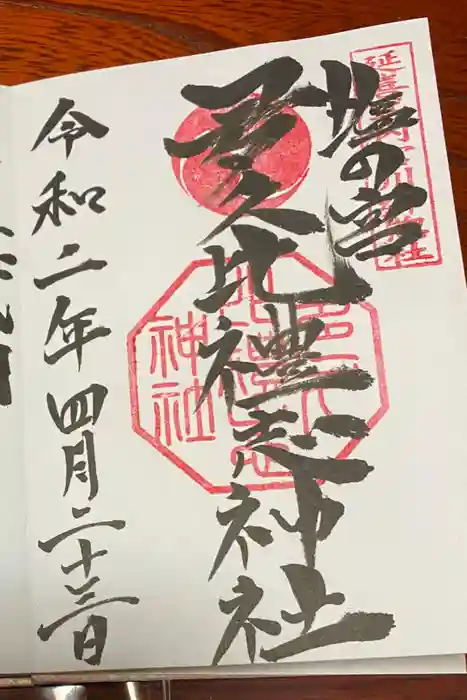 塩の宮
多久比禮志神社
多久
比禮志
神社
令和二年四月二十三日